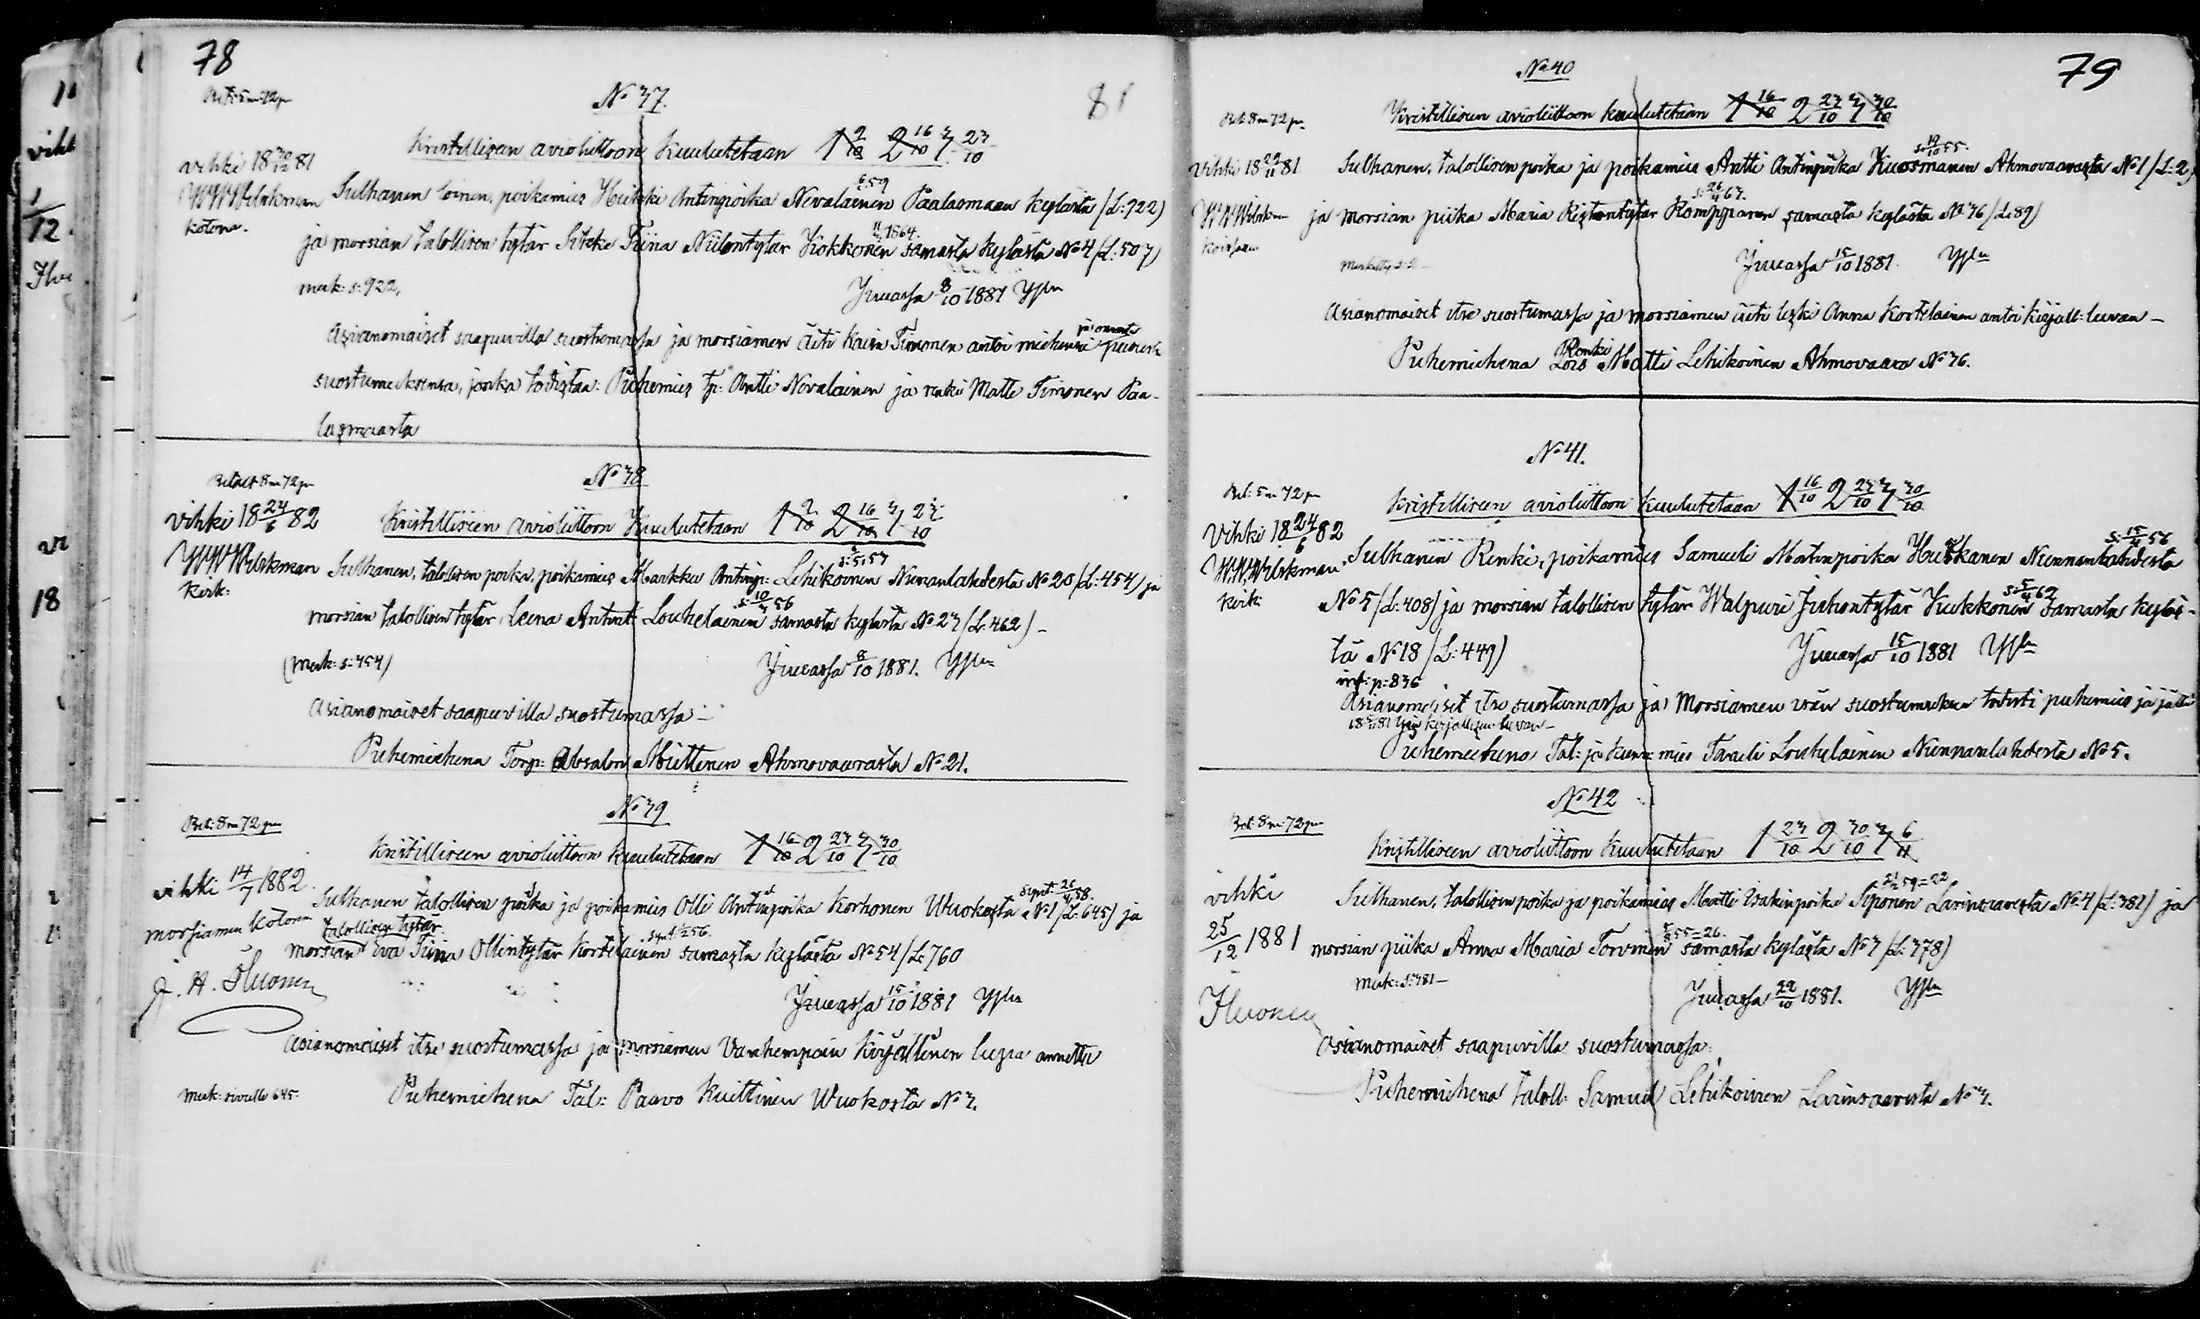 78
81
Bet: 5 m 72 p
No 37.
Kristilliseen avioliittoon kuulutetaan 1 2/10 2 16/10 3 23/10
vihki 18 30/12 81
WWWilskman
kotona.
Sulhanen loinen, poikamies Heikki Antinpoika Nevalainen Paalasmaan kylästä (L: 922)
ja morsian talollisen tytär Sikke Tiina Niilontytär Kokkonen samasta kylästä No 4 (L: 507)
merk: s: 922,
Juuassa 8/10 1881
Asianomaiset saapuvilla suostumassa ja morsiamen äiti Kaisa Timonen antoi miehensä ja omasta puolesta
suostumuksensa, jonka todistaa: Puhemies Antti Nevalainen ja renki Matti Timonen Paa-
lasmaasta
Betalt 8 m 72 p
No 38
vihki 18 24/6 82
Kristilliseen avioliittoon Kuulutetaan 1 2/10 2 16/10 3 23/10
WWWilskman
kirk:
Sulhanen, talollisen poika, poikamies Markku Antinp: Lehikoinen Nunnanlahdesta No 20 (L: 454) ja
morsian talollisen tytär Leena Antint Louhelainen samasta kylästä No 23 (L: 462) -
(merk: s: 454)
Juuassa 8/10 1881.
Asianomaiset saapuvilla suostumassa -
Puhemiehena Torp: Absalon Miettinen Ahmovaarasta No 21.
No 39
Bet: 8 m 72 p
Kristilliseen avioliittoon kuulutetaan 1 16/10 2 23/10 3 30/10
vihki 14/7 1882.
morsiamen kotona
J. H. Ihvonen
Sulhanen talollisen poika ja poikamies Olli Antinpoika Korhonen Wuokosta No 1 (L: 645) ja
talollisen tytär
morsian Eva Tiina Ollintytär Kortelainen samasta kylästä No 54 (L: 760
Juuassa 15/10 1881
Asianomaiset itse suostumassa ja morsiamen Vanhempain kirjallinen lupa annettu
merk: sivulle 645.
Puhemiehena Tal: Paavo Kuittinen Wuokosta No 3.
79
No 40
Bet 8 m 72 p
Kristilliseen avioliittoon kuulutetaan 1 16/10 2 23/10 3 30/10
Vihki 18 29/11 81
WWWilskman
Sulhanen, talollisen poika ja poikamies Antti Antinpoika Kuosmanen Ahmovaarasta No 1 (L: 2)
ja morsian piika Maria Ristontytär Romppanen samasta kylästä No 36 (L: 89)
Juuassa 15/10 1881.
Asianomaiset itse suostumassa ja morsiamen äiti leski Anna Kortelainen antoi kirjall: luvan -
Puhemiehena Renki Matti Lehikoinen Ahmovaara No 36.
No 41.
Bet: 5 m 72 p
Kristilliseen avioliittoon kuulutetaan 1 16/10 2 23/10 3 30/10
Vihki 18 24/6 82
WWWilskman
kirk:
s: 15/4 56
Sulhanen Renki, poikamies Samueli Matinpoika Huskanen Nunnanlahdesta
No 5 (L: 408) ja morsian talollisen tytär Walpuri Juhontytär Kukkonen samasta kyläs-
tä No 18 (L: 449)
Juuassa 15/10 1881
inf: p: 836
Asianomaiset itse suostumassa ja Morsiamen isän suostumuksen todisti puhemies ja jätti
kirjallisen luvan -
Puhemiehena Tal: ja mies Taneli Louhelainen Nunnanlahdesta No 5.
No 42
Bet: 8 m 72 p
Kristilliseen avioliittoon kuulutetaan 1 23/10 2 30/10 3 6/11
vihki
25/12 1881
Ihvonen
Sulhanen, talollisen poika ja poikamies Matti Isakinpoika Siponen Larinsaaresta No 4 (L: 381) ja
morsian piika Anna Maria Torvinen samasta kylästä No 3 (L: 378)
merk: s: 381 -
Juuassa 22/10 1881.
Asianomaiset saapuvilla suostumassa.
Puhemiehena taloll: Samuel Lehikoinen Larinsaaresta No 3.